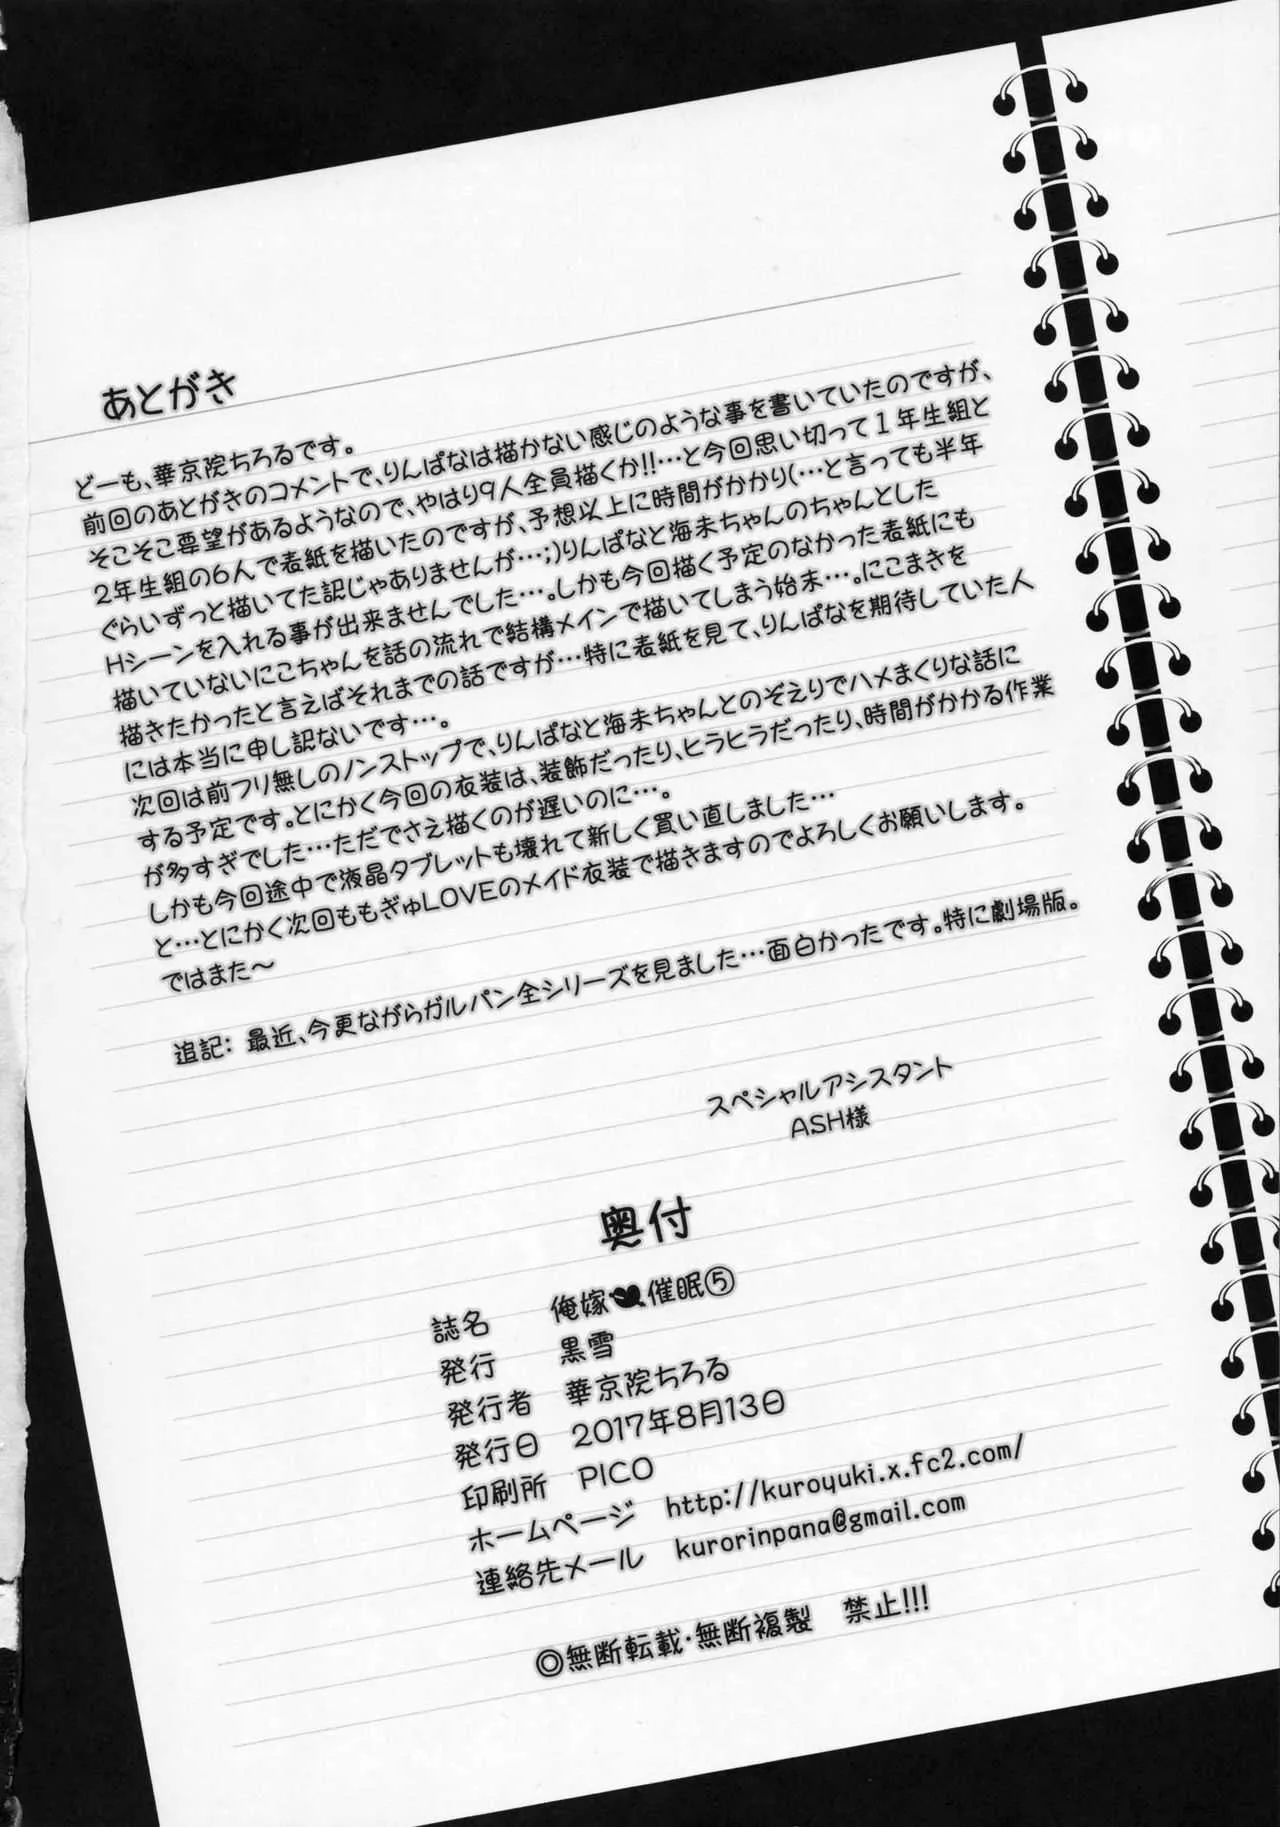 あとがき
どーも、華京院ちろるです。
前回のあとがきのコメントで、りんぱなは描かない感じのような事を書いていたのですが、
そこそこ要望があるようなので、やはり9人全員描くか!!…と今回思い切って1年生組と
2年生組の6人で表紙を描いたのですが、予想以上に時間がかかり(…と言っても半年
ぐらいずっと描いてた認じゃありませんが…;)りんぱなと海未ちゃんのちゃんとした
Hシーンを入れる事が出来ませんでした…。しかも今回描く予定のなかった表紙にも
描いていないにこちゃんを話の流れで結構メインで描いてしまう始末…。にこまきを
描きたかったと言えばそれまでの話ですが…特に表紙を見て、りんぱなを期待していた人
には本当に申し認ないです…。
次回は前フリ無しのノンストップで、りんぱなと海未ちゃんとのぞえりでハメまくりな話に
する予定です。とにかく今回の衣装は、装飾だったり、ヒラヒラだったり、時間がかかる作業
が多すぎでした…ただでさえ描くのが遅いのに…。
しかも今回途中で液晶タブレットも壊れて新しく買い直しました…
と…とにかく次回ももぎゅLOVEのメイド衣装で描きますのでよろしくお願いします。
ではまた～
追記: 最近、今更ながらガルパン全シリーズを見ました…面白かったです。特に劇場版。
スペシャルアシスタント
ASH様
奥付
誌名 俺嫁催眠⑤
発行 黒雪
発行者 華京院ちろる
発行日 2017年8月13日
印刷所 PICO
ホームページ http://kuroyuki.x.fc2.com/
連絡先メール kurorinpana@gmail.com
◎無断転載・無断複製 禁止!!!